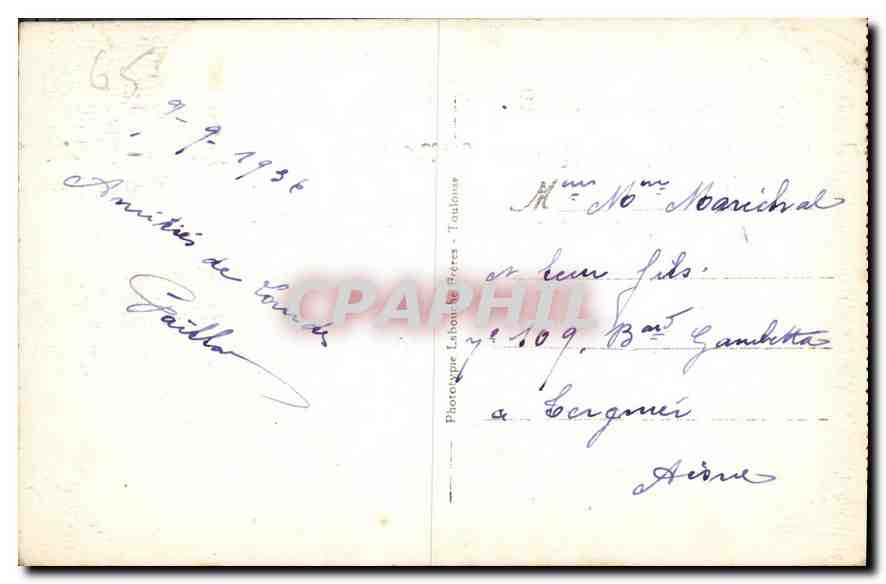 65
9-9-1936
Amitiés de Lourdes
Phototypie Labouche Frères - Toulouse
CPAPHIL
Mme Maréchal
et leur fils.
109, Bard Gambetta
a Tergnier
Aisne